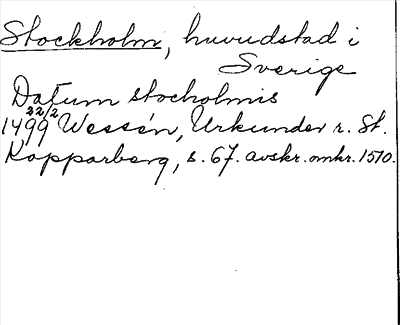 Stockholm, huvudstad i
Sverige
Datum stocholmis
22/2
1499 Wessén, Urkunder r. St.
Kopparberg, s. 67. avskr. omkr. 1510.